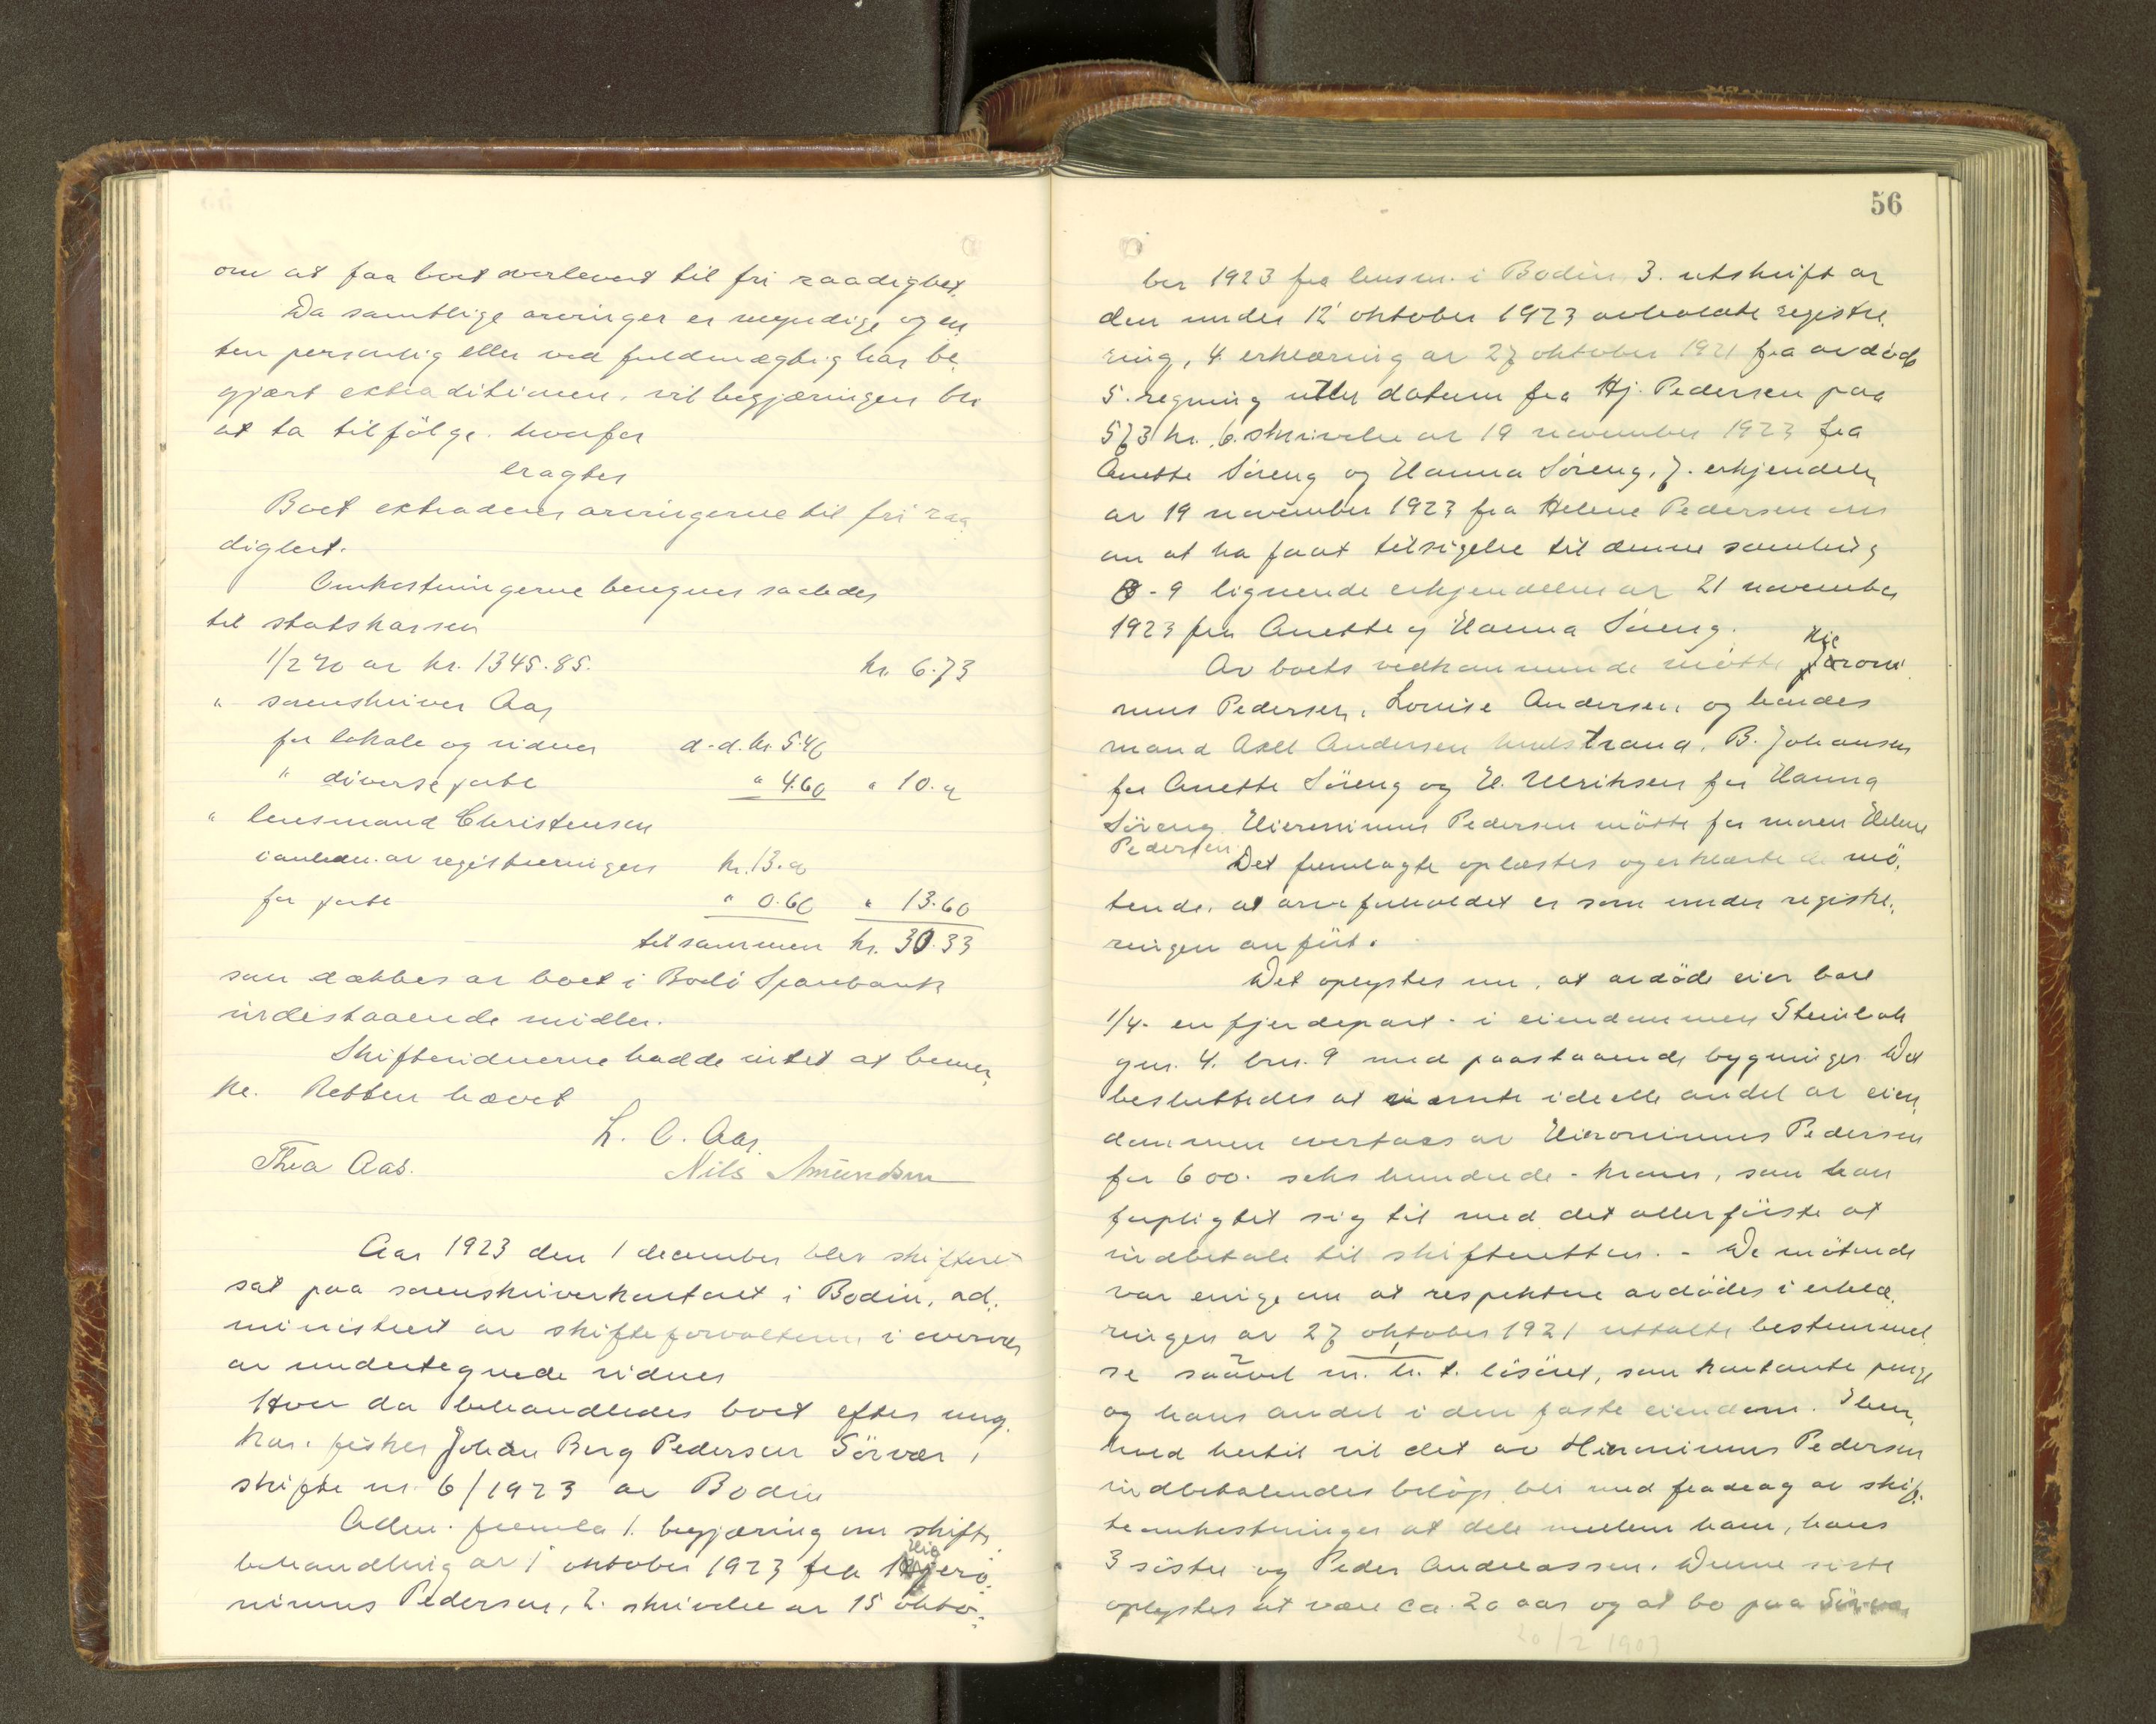 om at faa boet overlevert til fri raadighet.
Da samtlige arvinger er myndige og en
ten personlig eller ved fuldmægtig har be-
gjært extraditionen, vil begjæringen bli
at ta tilfölge. hvorfor
eragtes
Boet extraderes arvingerne til fri raa
dighet.
Omkostningerne beregnes saaledes
til statskassen
1/2 % av kr. 1345.85. kr. 6.73
" sorenskriver Aas
for lokale og vidner d.d. kr. 5.40
" diverse porto " 4.60 " 10.00
" lensmand Christensen
i anledn. av registreringen kr. 13.00
for porto " 0.60 " 13.60
tilsammen kr. 30.33
som dækkes av boet i Bodö Sparebank
indestaaende midler.
Skiftevidnerne hadde intet at bemer-
ke. Retten hævet
L. C. Aas
Thea Aas. Nils Amundsen
Aar 1923 den 1 december blev skifteret
sat paa sorenskriverkontoret i Bodin, ad-
ministreret av skifteforvalteren i overvær
av undertegnede vidner
Hvor da behandledes boet efter ung-
kar. fisker Johan Berg Pedersen Sörvær,
skifte nr. 6/1923 av Bodin
Adm. fremla 1. begjæring om skifte
Hie
behandling av 1 oktober 1923 fra Hjero-
nimus Pedersen, 2. skrivelse av 15 okto-
56
ber 1923 fra lensm. i Bodin 3. utskrift av
den under 12 oktober 1923 avholdte registre-
ring, 4. erklæring av 27 oktober 1921 fra avdöde
5. regning uten datum fra Hj. Pedersen paa
573 kr. 6. skrivelse av 19 november 1923 fra
Anette Söreng og Hanna Söreng, 7. erkjendelse
av 19 november 1923 fra Helene Pedersen om
om at ha faat tilsigelse til denne samling
8-9 lignende erkjendelser av 21 november
1923 fra Anette og Hanna Söreng.
Hie
Av boets vedkommende mötte Jeroni
mus Pedersen, Louise Andersen og hendes
mand Axel Andersen B. Johansen
for Anette Söreng og H. Ulriksen for Hanna
Söreng. Hieronimus Pedersen mötte for moren Helene
Pedersen
Det fremlagte oplæstes og erklærte de mö-
tende, at arveforholdet er som under registre-
ringen anfört.
Det oplystes nu, at avdöde eier bare
1/4 - en fjerdepart - i eiendommen Steinbak
gnr. 4. brn. 9 med paastaaende bygninger. Det
besluttedes at nævnte ideelle andel av eien-
dommen overtaes av Hieronimus Pedersen
for 600 - seks hundrede - kroner, som han
forpligtet sig til med det allerförste at
indbetale til skifteretten. - De mötende
var enige om at respektere avdödes i erklæ-
ringen av 27 oktober 1921 uttalte bestemmel
se saavel m. h. t. lösöret, som kontante penge
og hans andel i den faste eiendom. I hen-
hold hertil vil det av Hieronimus Pedersen
indbetalendes belöp bli med fradrag av skif-
teomkostninger at dele mellem ham, hans
3 söstre og Peder Andreassen. Denne siste
oplystes at være ca. 20 aar og at bo paa Sörvær
20/2 1903